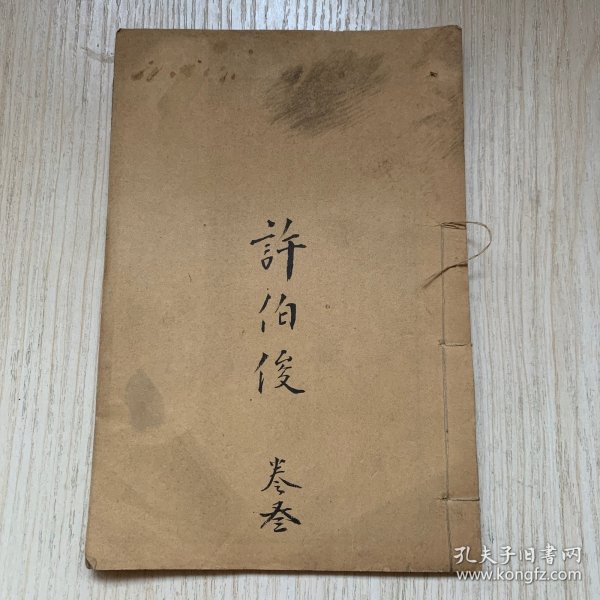 許伯俊
卷叁
孔夫子旧書网
www.kongfz.com